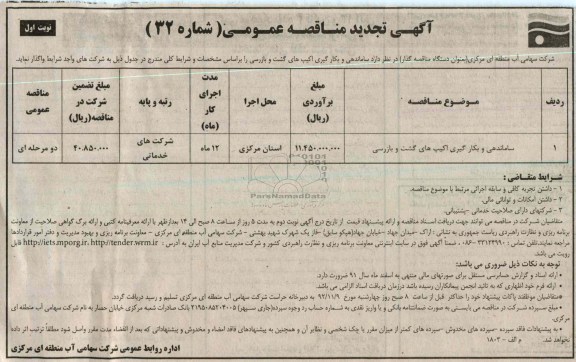 آگهی تجدید مناقصه عمومی( شماره ۳۲ )
نوبت اول
شرکت سهامی آب منطقه ای مرکزی(بعنوان دستگاه مناقصه گذار) در نظر دارد ساماندهی و بکار گیری اکیپ های گشت و بازرسی را براساس مشخصات و شرایط کلی مندرج در جدول ذیل به شرکت های واجد شرایط واگذار نماید.
ردیف
موضوع مناقصه
مبلغ برآوردی (ریال)
محل اجرا
مدت اجرای کار (ماه)
رتبه و پایه
مبلغ تضمین شرکت در مناقصه(ریال)
مناقصه عمومی
۱
ساماندهی و بکار گیری اکیپ های گشت و بازرسی
۱۱.۴۵۰.۰۰۰.۰۰۰
استان مرکزی
۱۲ ماه
شرکت های خدماتی
۴۰.۸۵۰.۰۰۰
دو مرحله ای
شرایط متقاضی :
۱ - داشتن تجربه کافی و سابقه اجرائی مرتبط با موضوع مناقصه.
۲ - داشتن امکانات و توانائی مالی.
۳ - شرکتهای دارای صلاحیت خدماتی -پشتیبانی.
متقاضیان شرکت در مناقصه می توانند جهت دریافت اسناد مناقصه و ارائه پیشنهاد قیمت از تاریخ درج آگهی نوبت دوم به مدت ۵ روز از ساعت ۸ صبح الی ۱۴ بعدازظهر با ارائه معرفینامه کتبی و ارائه برگ گواهی صلاحیت از معاونت
برنامه ریزی و نظارت راهبردی ریاست جمهوری به نشانی :اراک -میدان جهاد -خیابان جهاد(هپکو سابق) -فاز یک شهرک شهید بهشتی - شرکت سهامی آب منطقه ای مرکزی - معاونت برنامه ریزی و بهبود مدیریت و دفتر امور قراردادها
مراجعه نمایند.تلفن تماس : ۳۳۱۲۴۹۹۰ -۰۸۶ ، ضمنا آگهی فوق در سایت اینترنتی معاونت برنامه ریزی و نظارت راهبردی کشور و شرکت مدیریت منابع آب ایران به آدرس : http://iets.mporg.ir. http://tender.wrm.ir قابل
رویت می باشد.
توجه به نکات ذیل ضروری می باشد:
• ارائه اسناد و گزارش حسابرسی مستقل برای صورتهای مالی منتهی به اسفند ماه سال ۹۱ ضرورت دارد.
• ارائه فرم خود اظهاری که به تائید انجمن پیمانکاران رسیده باشد درزمان دریافت اسناد الزامی می باشد.
•متقاضیان موظفند پاکات پیشنهاد خود را حداکثر قبل از ساعت ۸ صبح روز چهارشنبه مورخ ۹۲/۱۱/۹ به دبیرخانه حراست شرکت سهامی آب منطقه ای مرکزی تسلیم و رسید دریافت گردد.
• مبلغ سپرده شرکت در مناقصه می بایستی به صورت ضمانتنامه بانکی و یا واریز نقدی به شماره حساب رد وجوه سپرده(جاری سیبها) بانک صادرات شعبه مرکزی خیابان حصار به نام شرکت سهامی آب منطقه ای
مرکزی.
• به پیشنهادات فاقد سپرده -سپرده های مخدوش -سپرده های کمتر از میزان مقرر یا چک شخصی و نظایر آن و همچنین به پیشنهادهای فاقد امضاء مخدوش و پیشنهاداتی که بعد از انقضاء مدت مقرر واصل شود مطلقاً ترتیب اثر داده
نخواهد شد. م الف - ۱۸۰۳
اداره روابط عمومی شرکت سهامی آب منطقه ای مرکزی
ParsNamadData